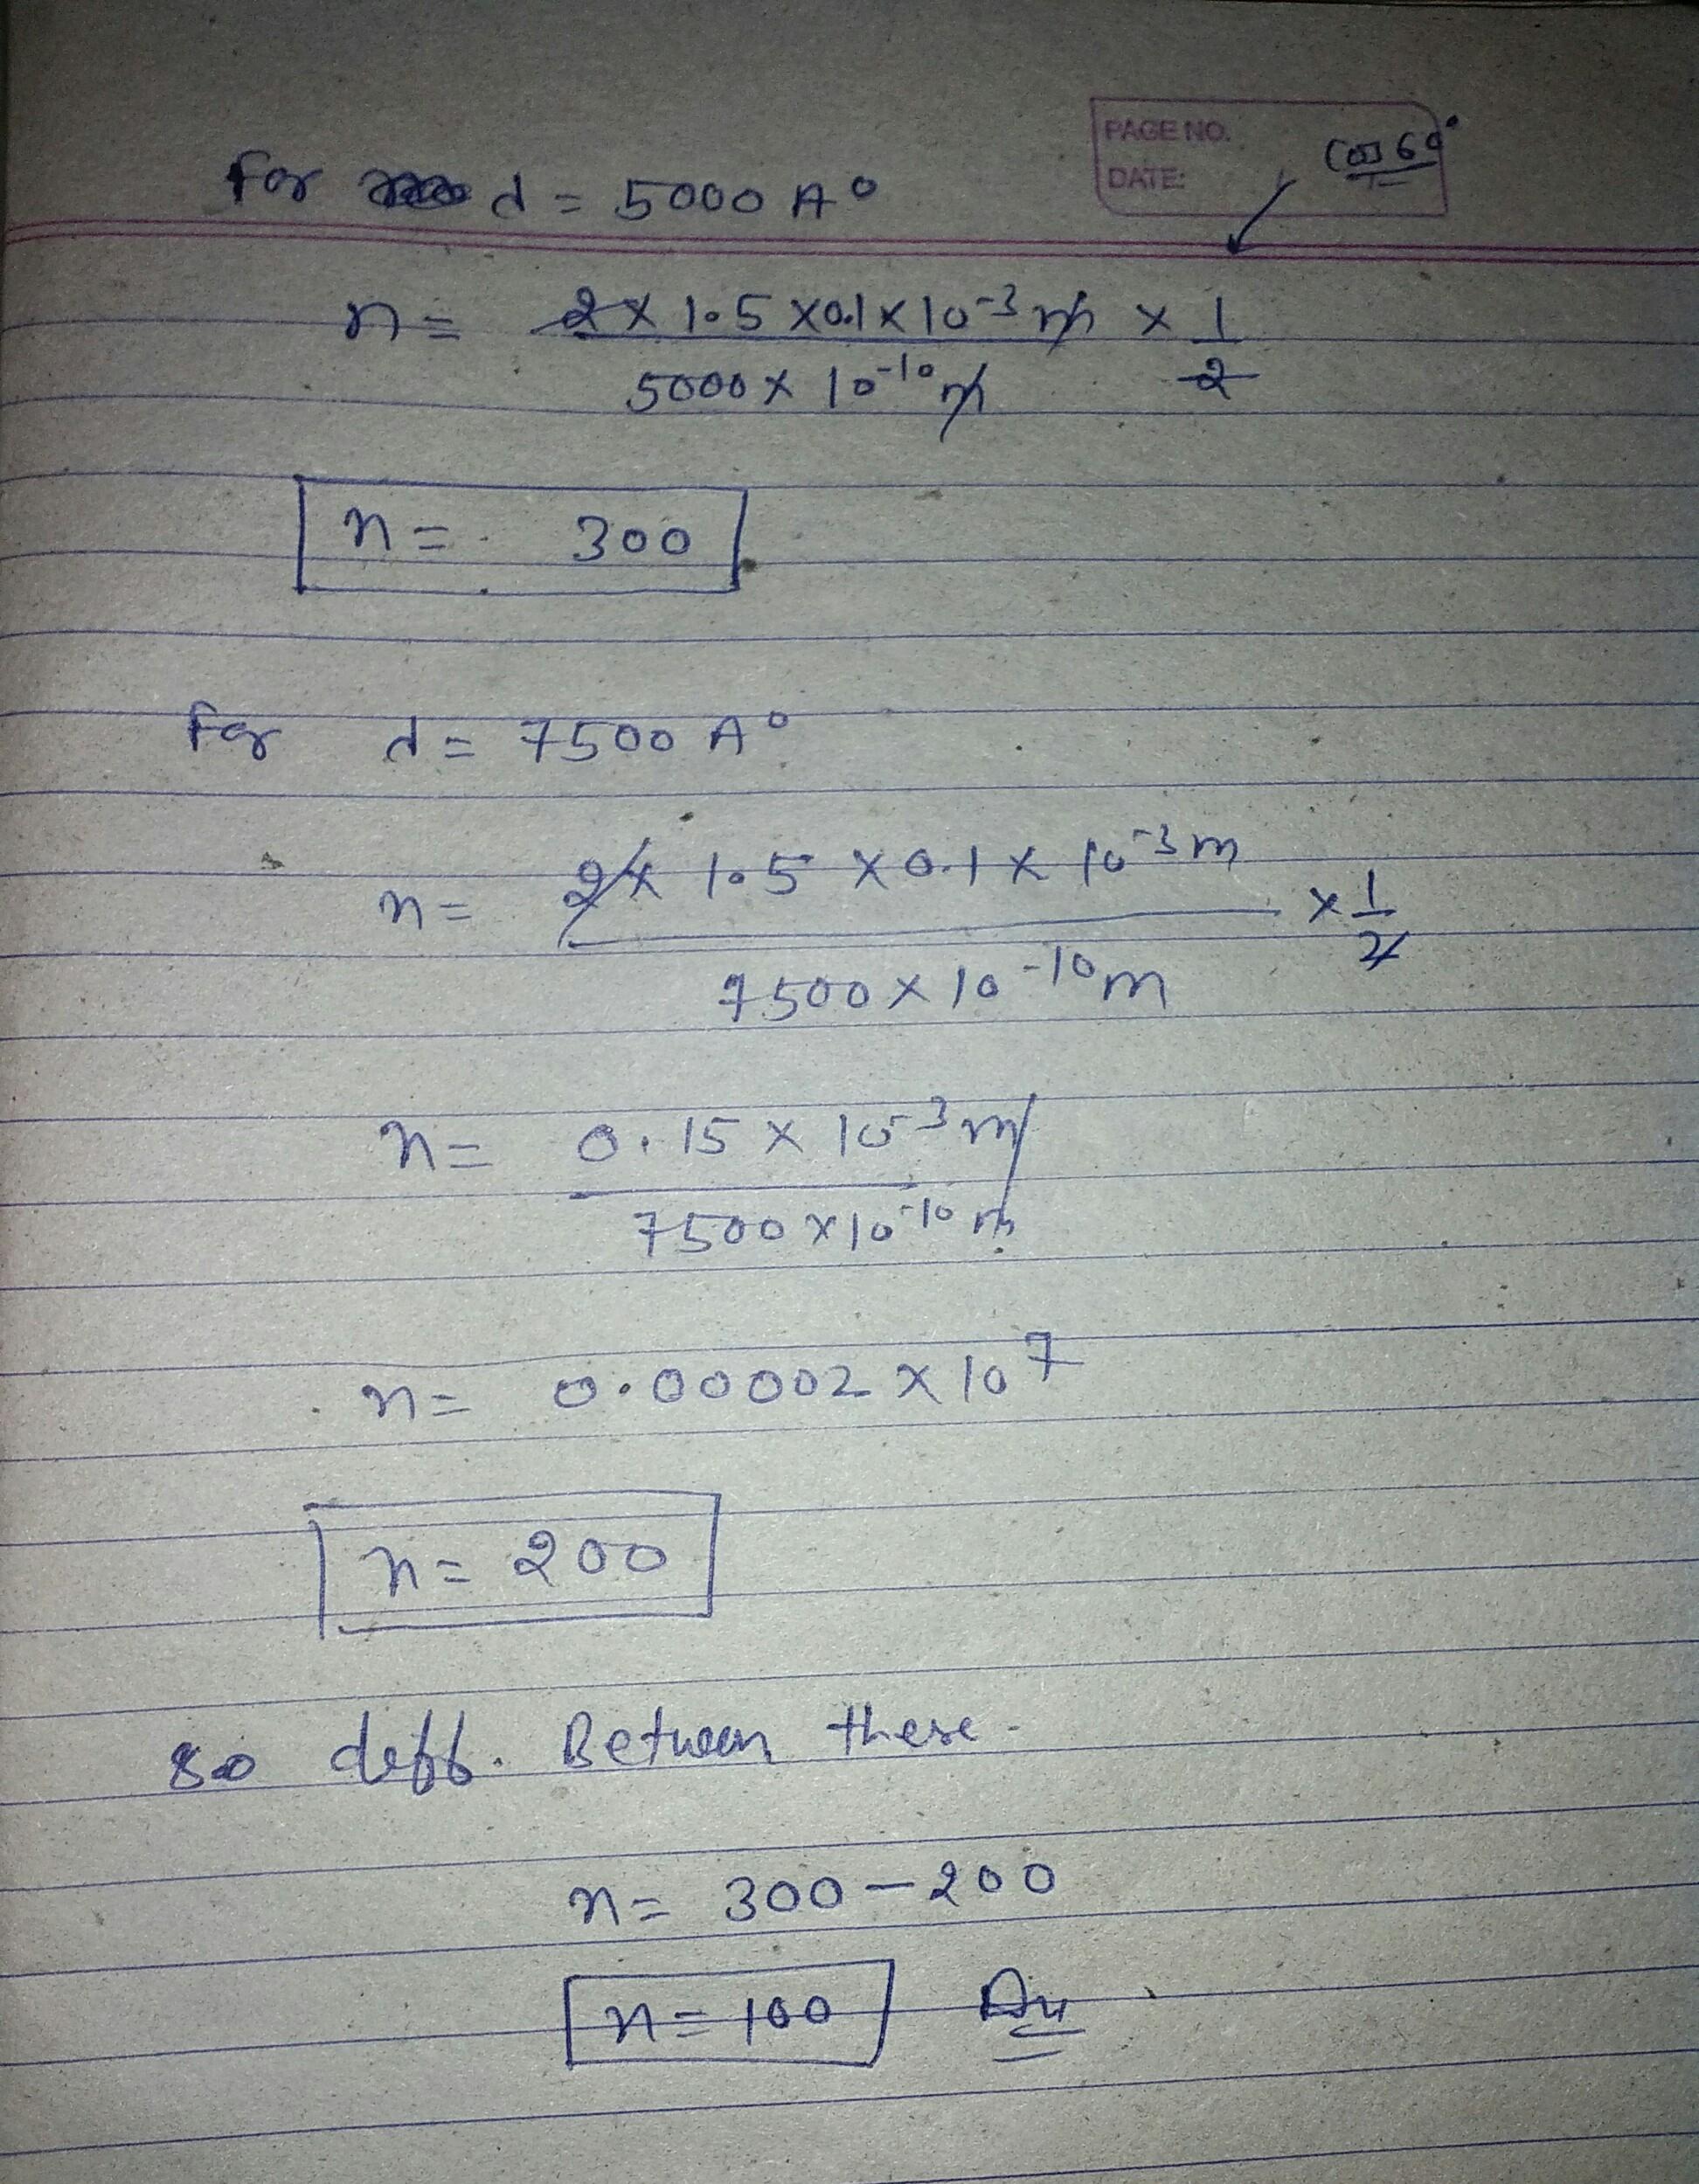 PAGE NO.
DATE:
Cos 60°
For d = 5000 A°
n = 2 × 1.5 × 0.1 × 10⁻³ m × 1
5000 × 10⁻¹⁰ m 2
n = 300
For d = 7500 A°
n = 2 × 1.5 × 0.1 × 10⁻³ m × 1
7500 × 10⁻¹⁰ m 2
n = 0.15 × 10⁻³ m
7500 × 10⁻¹⁰ m
n = 0.00002 × 10⁷
n = 200
so deff. Between these.
n = 300 - 200
n = 100